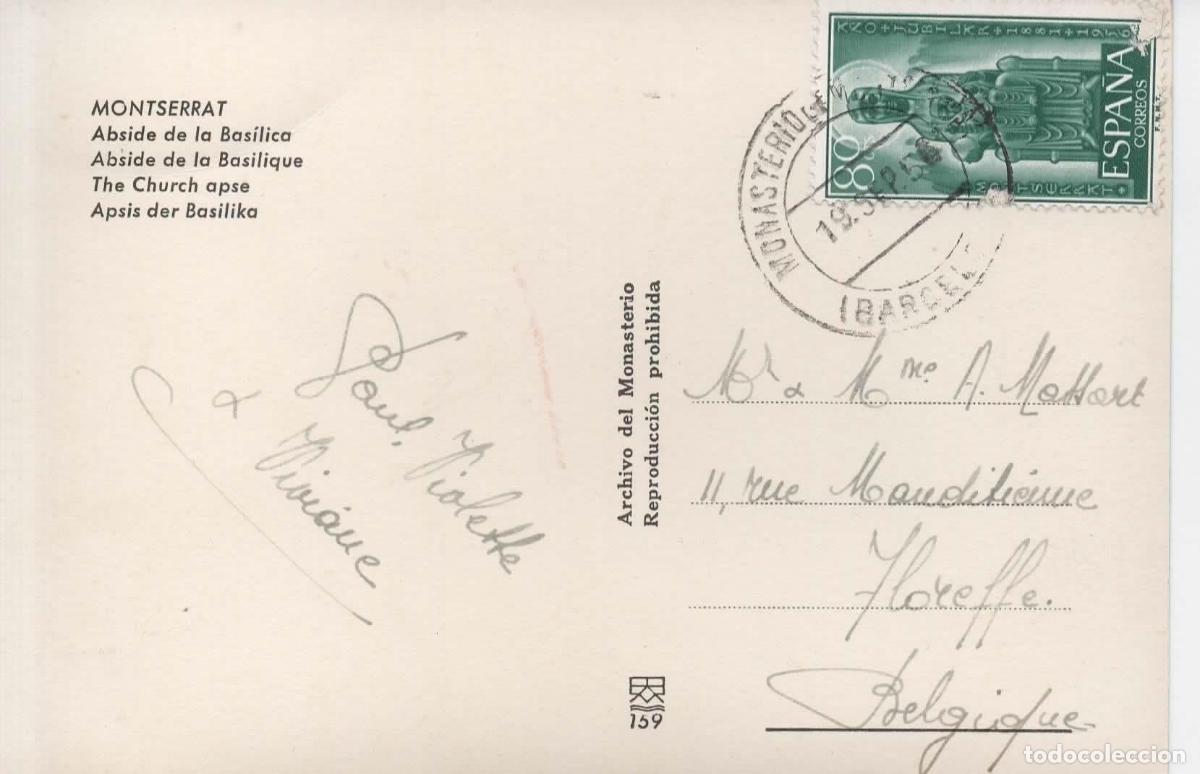 MONTSERRAT
Abside de la Basílica
Abside de la Basilique
The Church apse
Apsis der Basilika
Paul, Violette
& Viviane
Archivo del Monasterio
Reproducción prohibida
159
AÑO+JUBILAR+1881+1956
80
ESPAÑA
CORREOS
F.N.M.T.
MONTSERRAT+
MONASTERIO
19.SEP.56
Mr & Mme A. Massart
11, rue
Floreffe.
Belgique
todocoleccion